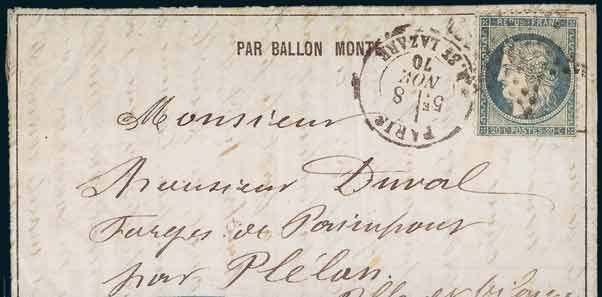 REPUB FRANC
PAR BALLON MONTÉ
PARIS R. ST LAZARE
5E
8
NOV
70
20 C POSTES 20 C
Monsieur
Monsieur Duval
Forges de Paimpont
par Plélan
Ille et Vilaine